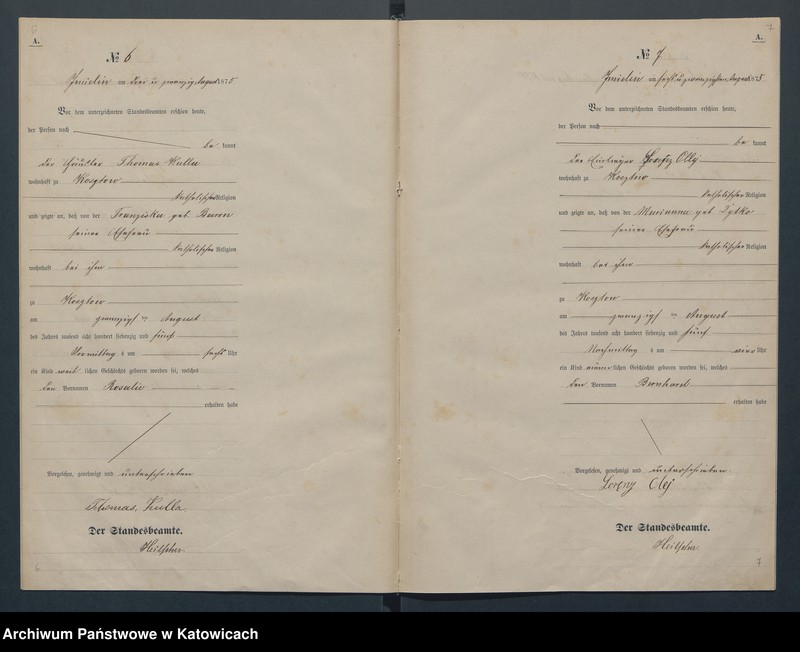 6
A.
№ 6
Imielin am drei u. zwanzig August 1875
Vor dem unterzeichneten Standesbeamten erschien heute,
der Person nach
be kannt
der Häusler Thomas Kulla
wohnhaft zu Kosztow
katholischer Religion
und zeigte an, daß von der Franziska geb. Baron
seiner Ehefrau
katholischer Religion
wohnhaft bei ihm
zu Kosztow
am zwanzigsten August
des Jahres tausend acht hundert siebenzig und fünf
Vormittag s um sechs Uhr
ein Kind weiblichen Geschlechts geboren worden sei, welches
den Vornamen Rosalie
erhalten habe
Vorgelesen, genehmigt und unterschrieben
Thomas Kulla
Der Standesbeamte.
6
7
A.
№ 7
Imielin am sechs u. zwanzigsten August 1875
Vor dem unterzeichneten Standesbeamten erschien heute,
der Person nach
be kannt
der Lorenz Olej
wohnhaft zu Kosztow
katholischer Religion
und zeigte an, daß von der Marianna geb. Dytko
seiner Ehefrau
katholischer Religion
wohnhaft bei ihm
zu Kosztow
am zwanzigsten August
des Jahres tausend acht hundert siebenzig und fünf
Nachmittag s um vier Uhr
ein Kind männlichen Geschlechts geboren worden sei, welches
den Vornamen Bernhard
erhalten habe
Vorgelesen, genehmigt und unterschrieben
Lorenz Olej
Der Standesbeamte.
7
Archiwum Państwowe w Katowicach